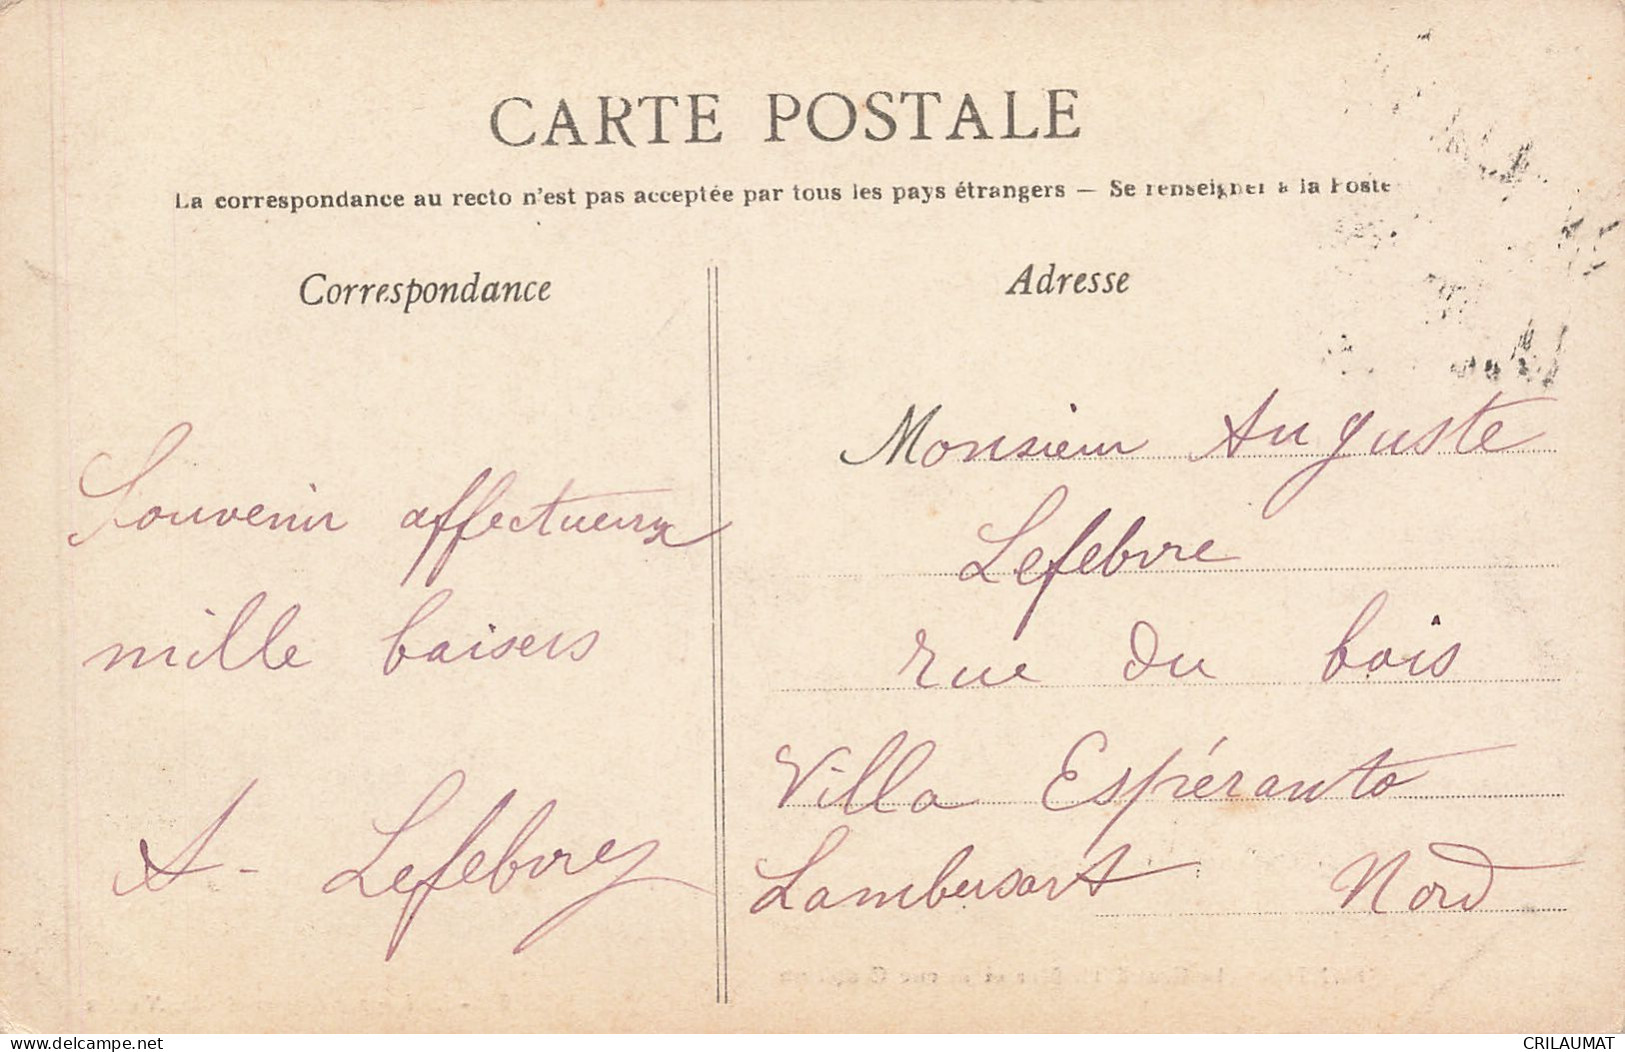 CARTE POSTALE
La correspondance au recto n'est pas acceptée par tous les pays étrangers — Se renseigner à la Poste
Correspondance
Adresse
Souvenir affectueux
mille baisers
A - Lefebvre
Monsieur Auguste
Lefebvre
rue du bois
Villa Espéranto
Lambersart Nord
www.delcampe.net
CRILAUMAT